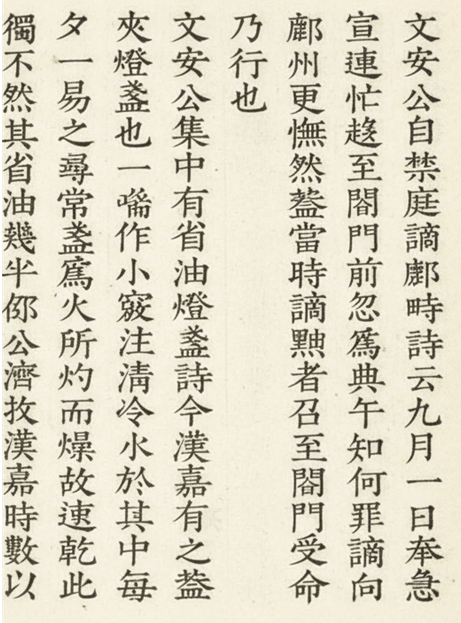 文安公自禁庭謫鄜時詩云九月一日奉急
宣連忙趍至閤門前忽爲典午知何罪謫向
鄜州更憮然葢當時謫黜者召至閤門受命
乃行也
文安公集中有省油燈盞詩今漢嘉有之葢
夾燈盞也一端作小竅注淸冷水於其中每
夕一易之尋常盞爲火所灼而燥故速乾此
獨不然其省油幾半邵公濟牧漢嘉時數以